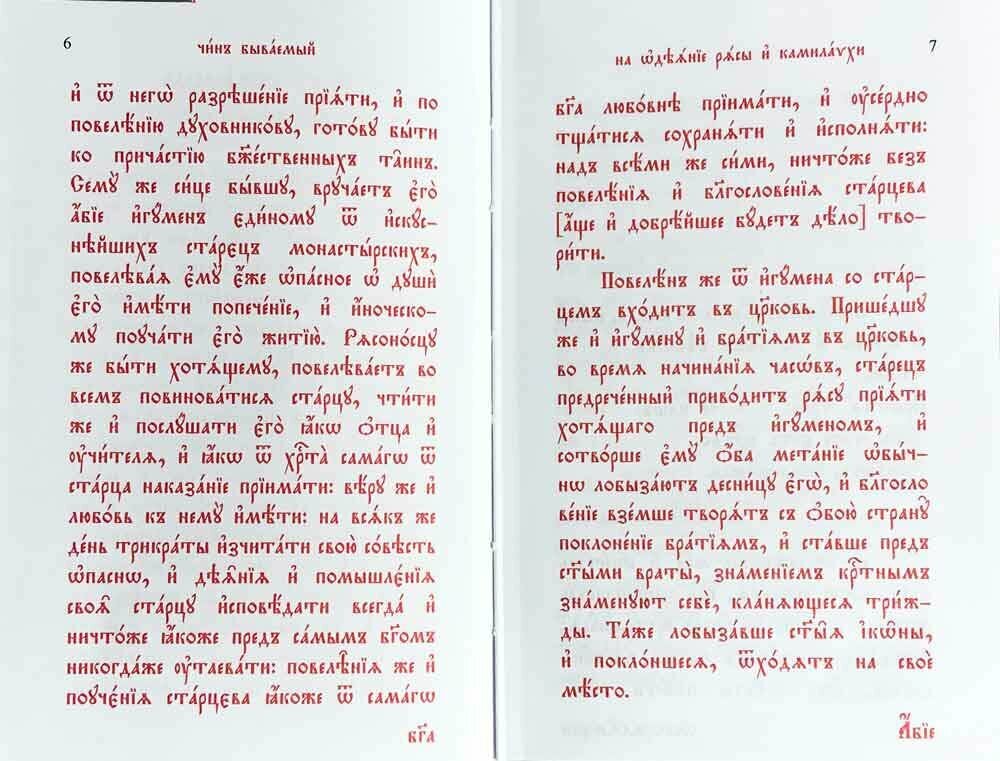 6
чи́нъ быва́емый
и҆ ѿ негѡ̀ разрѣше́нїе прїѧ́ти, и҆ по
повелѣ́нїю дꙋхо́вникову, гото́вꙋ бы́ти
ко прича́стїю бж҃е́ственныхъ та̑инъ.
Семꙋ̀ же си́це бы́вшꙋ, врꙋча́етъ є҆го̀
а҆́бїе и҆гꙋ́менъ є҆ди́номꙋ ѿ и҆скꙋс-
нѣ́йшихъ ста́рєцъ монасты́рскихъ,
повелѣва́ѧ є҆мꙋ̀ є҆́же ѡ҆па́сное ѡ҆ дꙋшѝ
є҆гѡ̀ и҆мѣ́ти попече́нїе, и҆ и҆́ноческо-
мꙋ поꙋча́ти є҆го̀ житїю̀. Рѧсоно́сцꙋ
же бы́ти хотѧ́щемꙋ, повелѣва́етъ во
все́мъ повинова́тисѧ ста́рцꙋ, чти́ти
же и҆ послꙋ́шати є҆го̀ ꙗ҆́кѡ ѻ҆тца̀ и҆
ᲂу҆чи́телѧ, и҆ ꙗ҆́кѡ ѿ хрⷭ҇та̀ самагѡ̀ ѿ
ста́рца наказа́нїе прїима́ти: вѣ́рꙋ же и҆
любо́вь къ немꙋ̀ и҆мѣ́ти: на всѧ́къ же
де́нь трикра́ты и҆зчита́ти свою̀ со́вѣсть
ѡ҆па́снѡ, и҆ дѣѧ̑нїѧ и҆ помышлє́нїѧ
своѧ̑ ста́рцꙋ и҆сповѣ́дати всегда̀ и҆
ничто́же ꙗ҆́коже предъ са́мымъ бг҃омъ
никогда́же ᲂу҆таева́ти: повелѣ̑нїѧ же и҆
поꙋчє́нїѧ ста́рцєва ꙗ҆́коже ѿ самагѡ
бг҃а
7
на ѡ҆дѣѧ́нїе рѧ́сы и҆ камилаѵхи
бг҃а любо́внѣ прїима́ти, и҆ ᲂу҆се́рднѡ
тщáтисѧ сохранѧ́ти и҆ и҆сполнѧ́ти:
надъ всѣ́ми же си́ми, ничто́же безъ
повелѣ́нїѧ и҆ блⷢ҇ослове́нїѧ ста́рцева
[а҆́ще и҆ добрѣ́йшее бꙋ́детъ дѣ́ло] тво-
ри́ти.
Повелѣ́нъ же ѿ и҆гꙋ́мена со ста́р-
цемъ вхо́дитъ въ цр҃ковь. Прише́дшꙋ
же и҆ и҆гꙋ́менꙋ и҆ бра́тїѧмъ въ цр҃ковь,
во время начина́нїѧ часѡ́въ, ста́рецъ
предрече́нный приво́дитъ рѧ́сꙋ прїѧ́ти
хотѧ́щаго предъ и҆гꙋ́меномъ, и҆
сотво́рше є҆мꙋ̀ ѻ҆́ба мета́нїе ѡ҆бы́ч-
нѡ лобыза́ютъ десни́цꙋ є҆гѡ̀, и҆ блⷢ҇осло
ве́нїе взе́мше творѧ́тъ съ ѻ҆бою̀ странꙋ̀
поклоне́нїе бра́тїѧмъ, и҆ ста́вше предъ
ст҃ы́ми враты̀, зна́менїемъ крⷭ҇тнымъ
зна́менꙋютъ себѐ, кла́нѧющесѧ три́ж-
ды. Та́же лобыза́вше ст҃ы̑ѧ і҆кѡ́ны,
и҆ покло́ншесѧ, ѿхо́дѧтъ на своѐ
мѣ́сто.
А҆́бїе